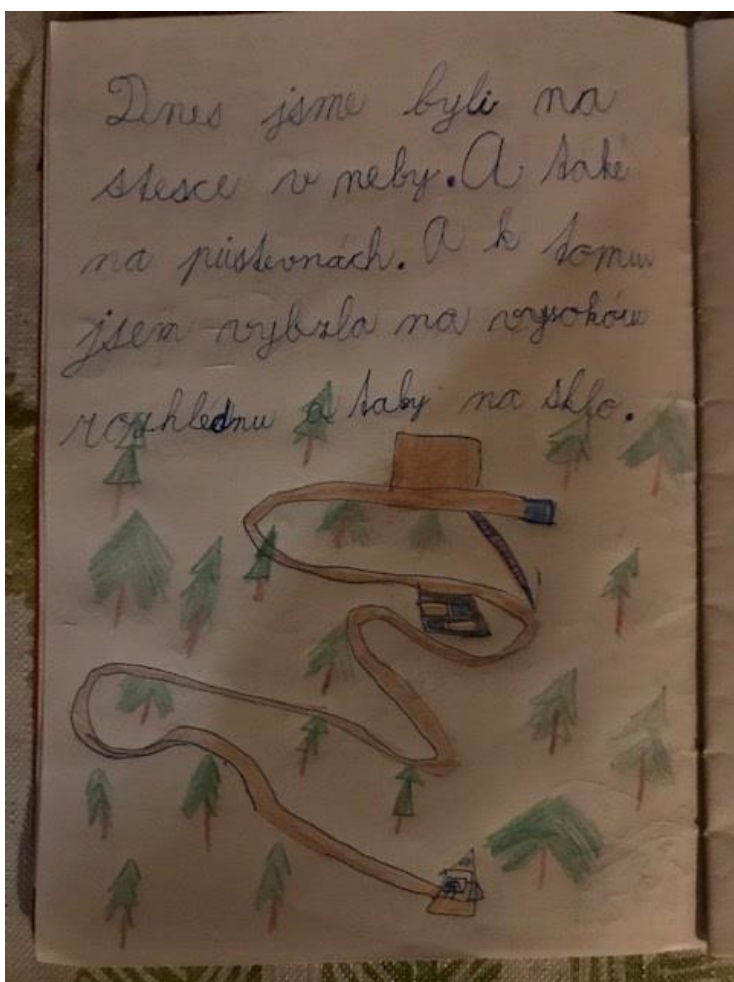 Dnes jsme byli na
stesce v neby. A také
na pústevnách. A k tomu
jsem vybzla na vysokóu
rozhlédnu a taby na sklo.